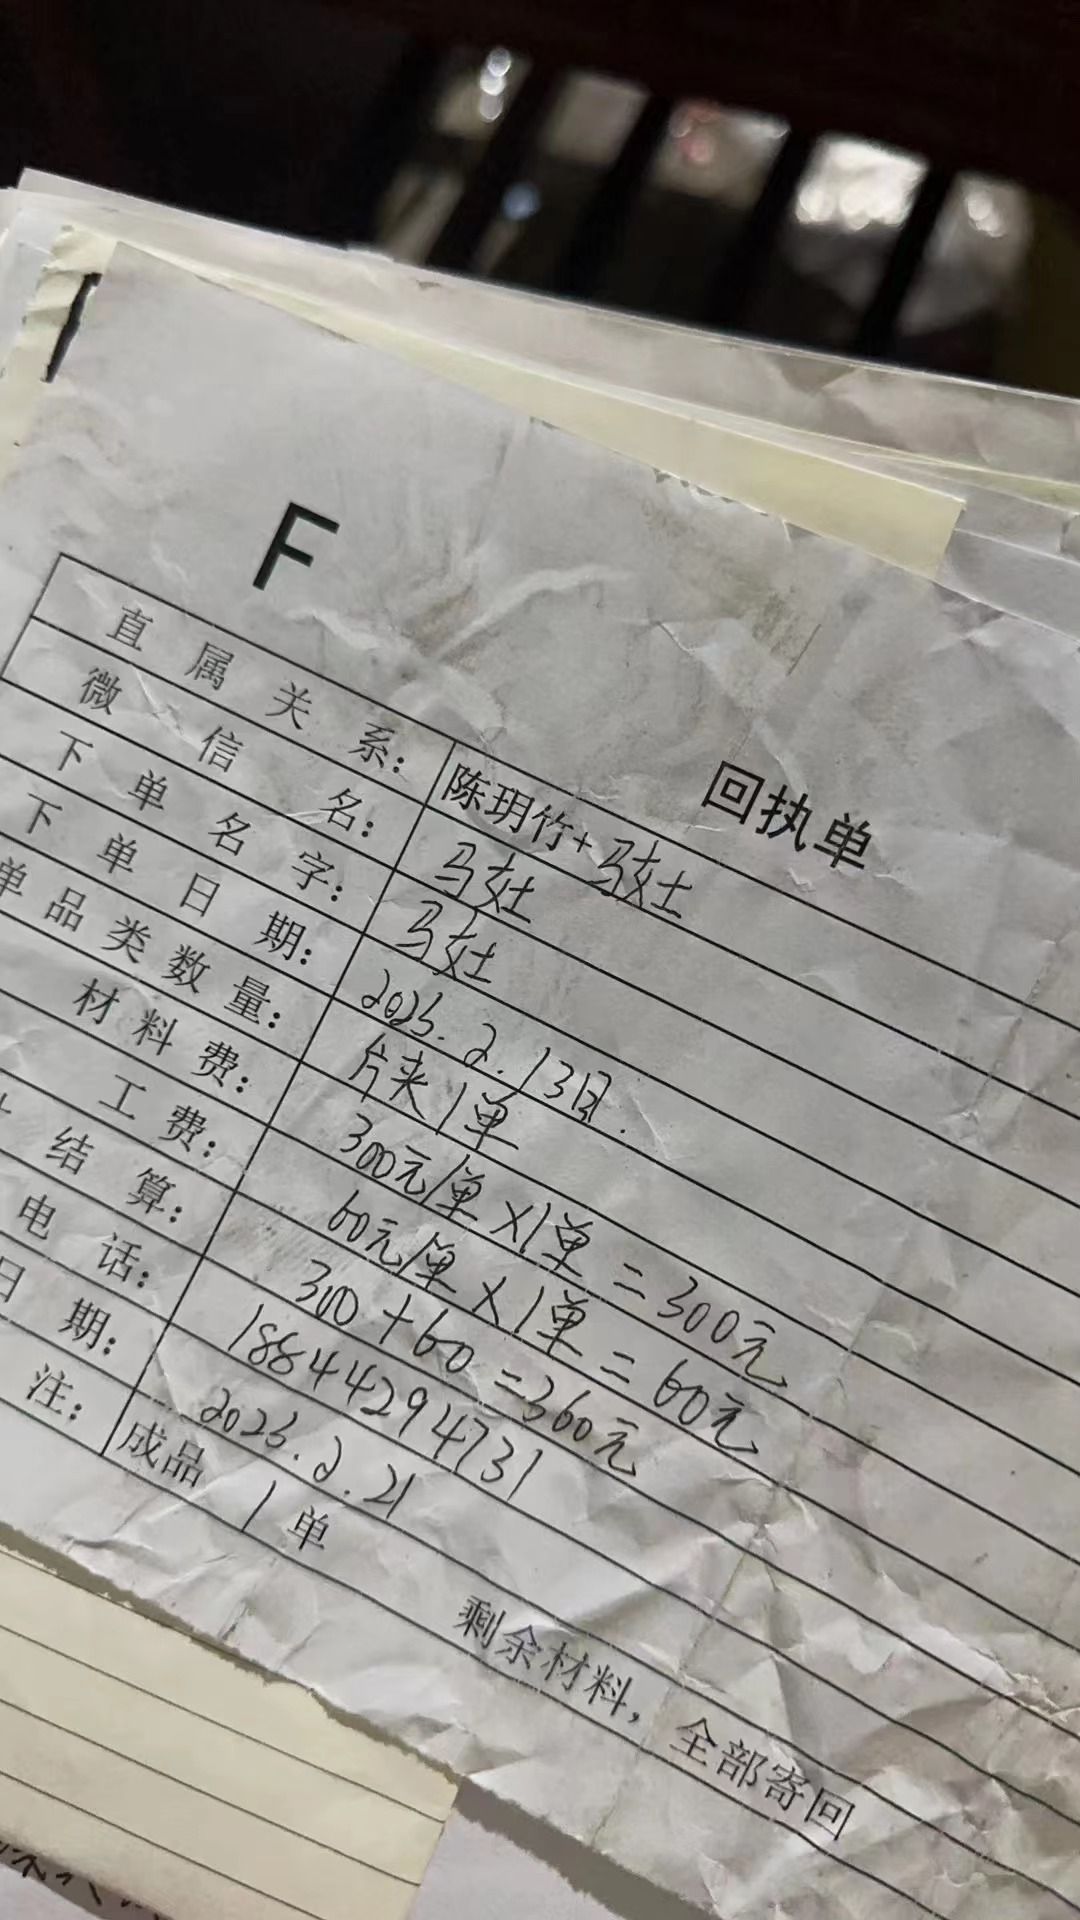 F
回执单
直属关系：陈玥竹+马玄壮
微信名：马玄壮
下单名字：马玄壮
下单日期：2023.2.13日.
单品类数量：片夹1单
材料费：300元/单×1单=300元
工费：60元/单×1单=60元
结算：300+60=360元
电话：18844294731
日期：2023.2.21
注：成品 1 单 剩余材料，全部寄回